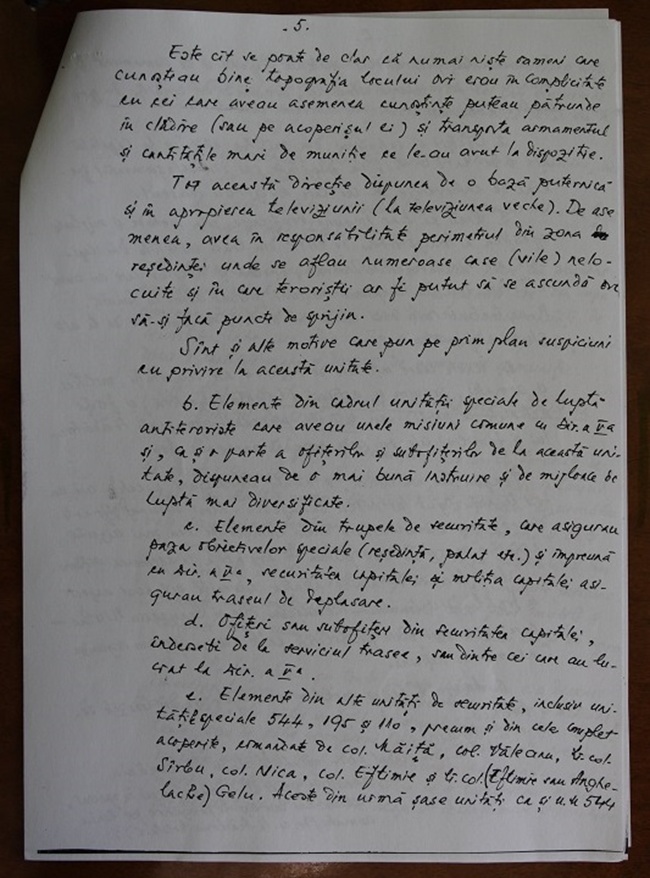 . 5.
Este cît se poate de clar că numai niște oameni care
cunoșteau bine topografia locului ori erau în complicitate
cu cei care aveau asemenea cunoștințe puteau pătrunde
în clădire (sau pe acoperișul ei) și transporta armamentul
și cantitățile mari de muniție ce le-au avut la dispoziție.
Tot această direcție dispunea de o bază puternică
și în apropierea televiziunii (la televiziunea veche). De ase
menea, avea în responsabilitate perimetrul din zona
reședinței unde se aflau numeroase case (vile) nelo-
cuite și în care teroriștii ar fi putut să se ascundă ori
să-și facă puncte de sprijin.
Sînt și alte motive care pun pe prim plan suspiciuni
cu privire la această unitate.
b. Elemente din cadrul unității speciale de luptă
antiteroriste care aveau unele misiuni comune cu Dir. a V a
și, ca și o parte a ofițerilor și subofițerilor de la această uni-
tate, dispuneau de o mai bună instruire și de mijloace de
luptă mai diversificate.
c. Elemente din trupele de securitate, care asigurau
paza obiectivelor speciale (reședință, palat etc.) și împreună
cu Dir. a V a, securitatea capitalei și miliția capitalei asi-
gurau traseul de deplasare.
d. Ofițeri sau subofițeri din securitatea capitalei,
îndeosebi de la serviciul trasee, sau dintre cei care au lu-
crat la Dir. a V a.
e. Elemente din alte unități de securitate, inclusiv uni-
tăți speciale 544, 195 și 110, precum și din cele complet
acoperite, comandate de col. Măiță, col. Văleanu, lt. col.
Sîrbu, col. Nica, col. Eftimie și lt. col. (Eftimie sau Anghe-
lache) Gelu. Aceste din urmă șase unități ca și u.m 544